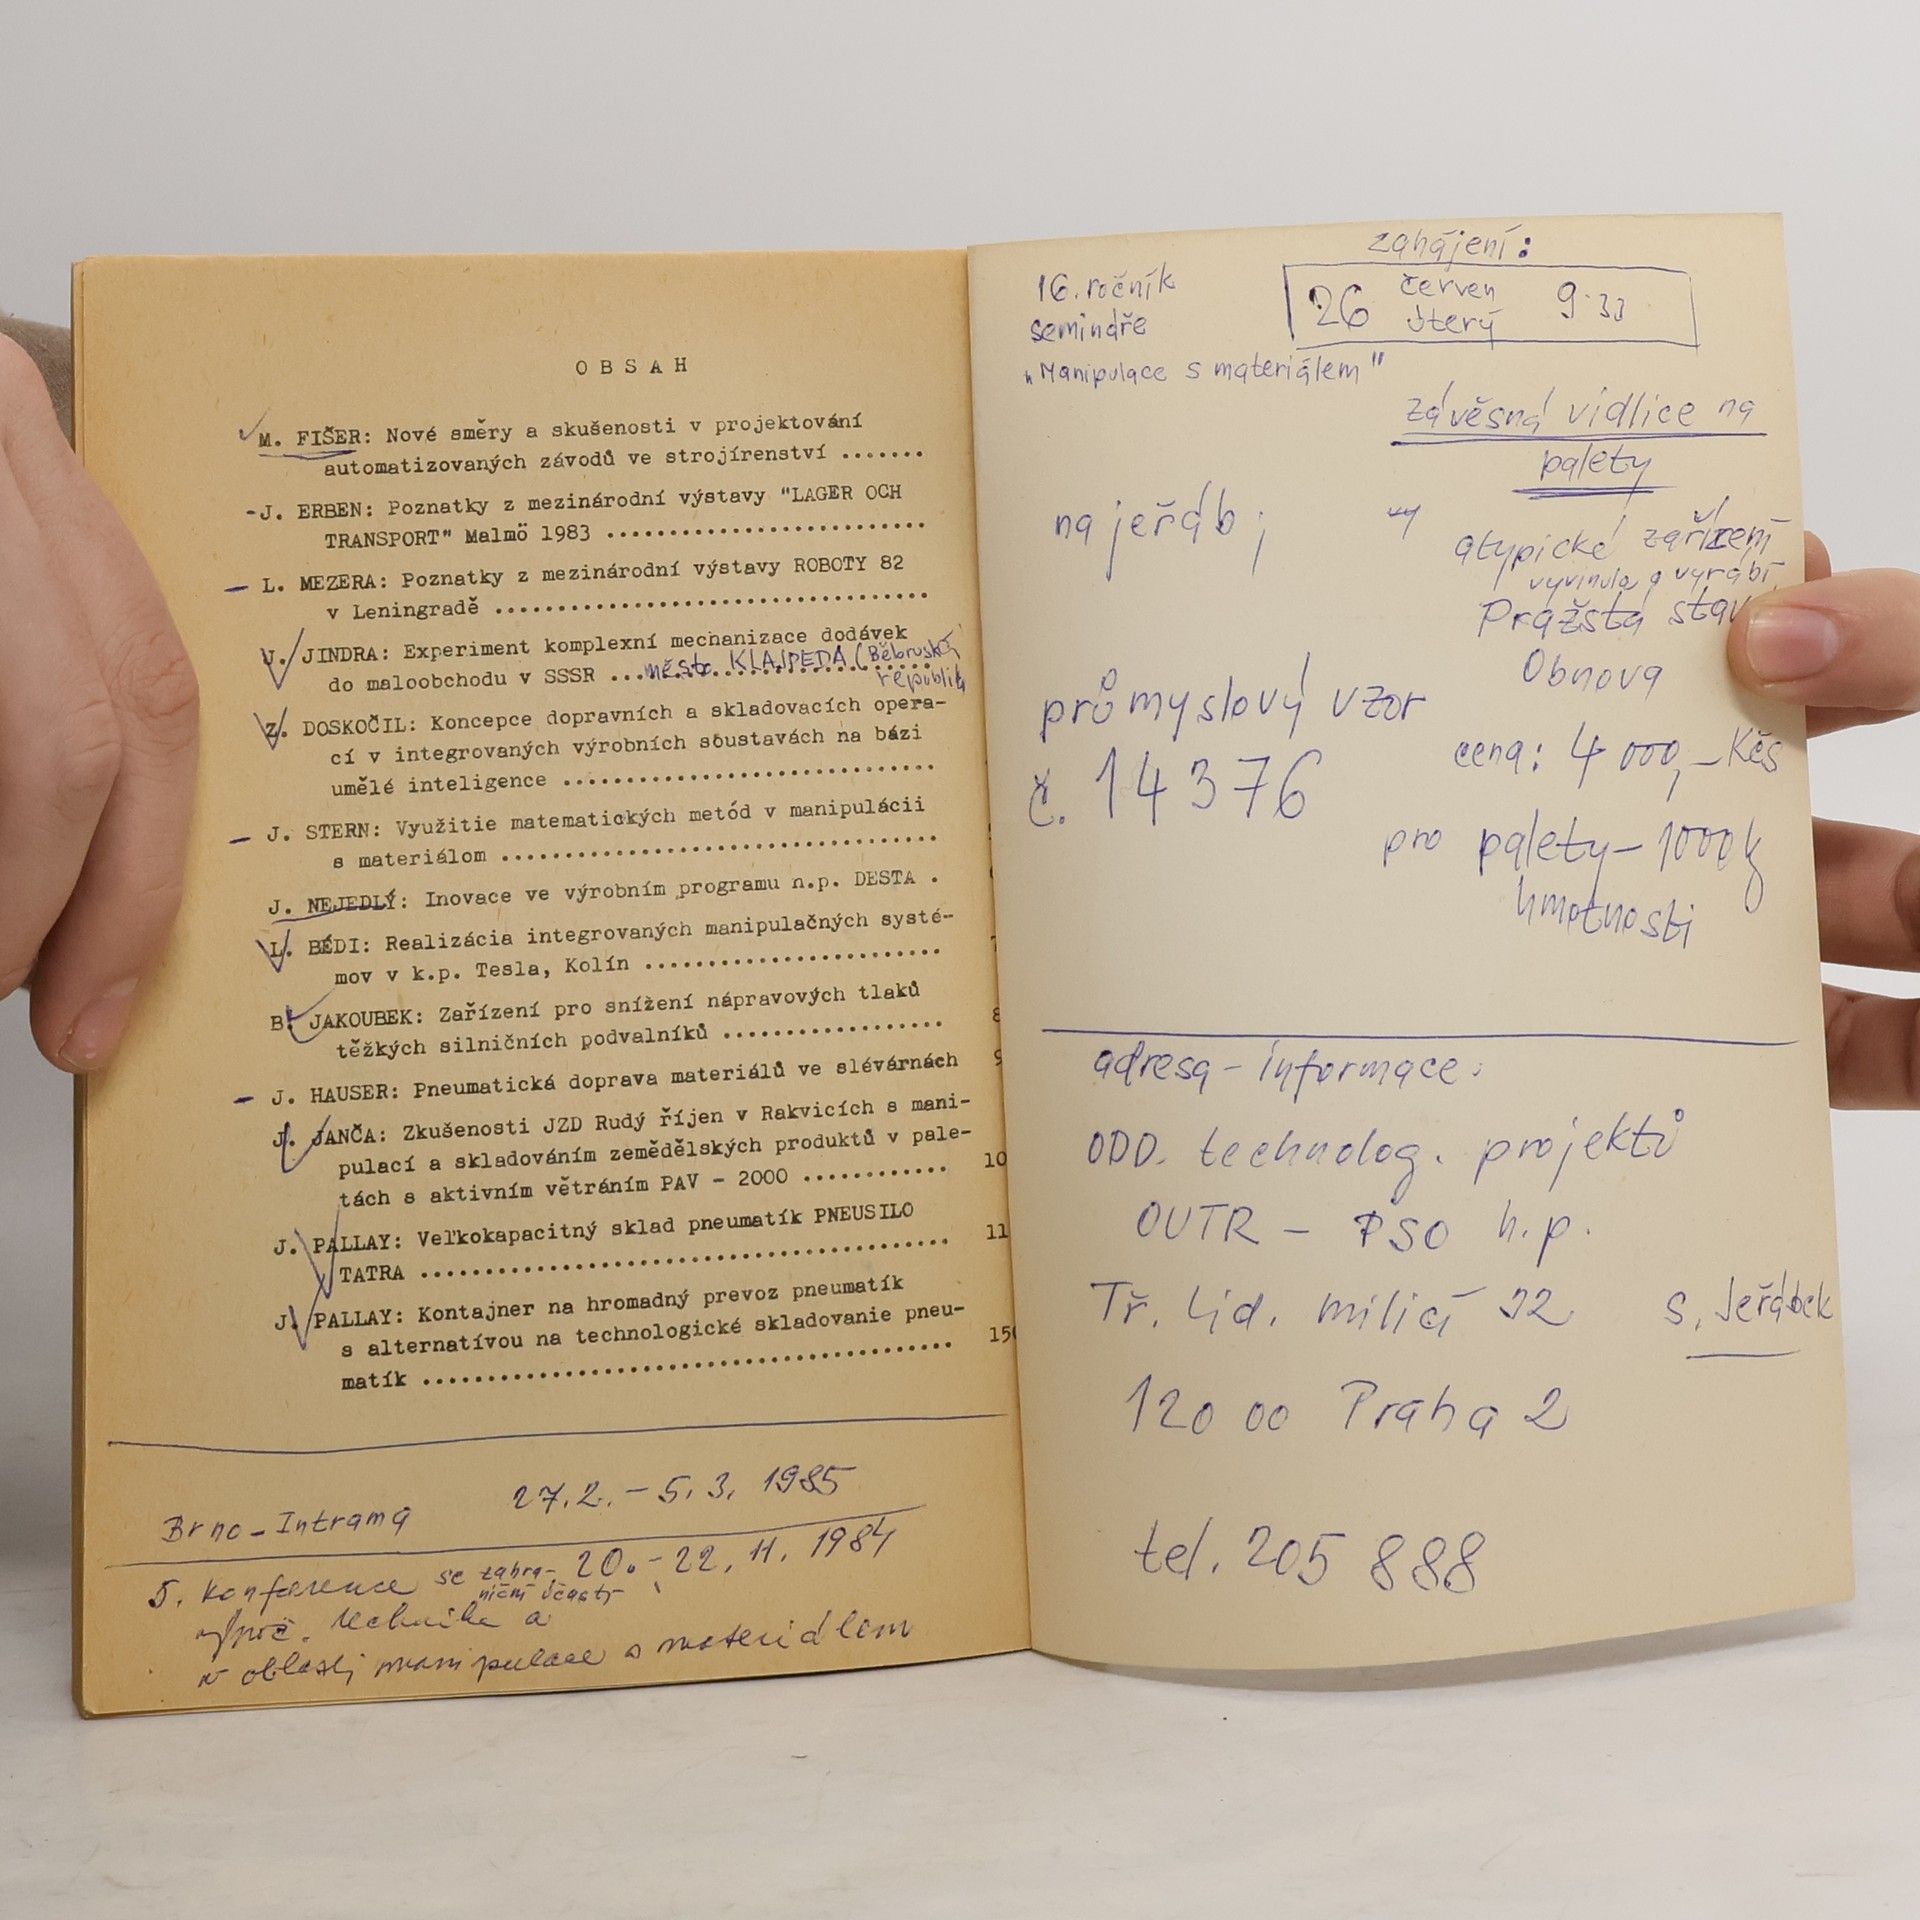 OBSAH
M. FIŠER: Nové směry a skušenosti v projektování
automatizovaných závodů ve strojírenství .......
-J. ERBEN: Poznatky z mezinárodní výstavy "LAGER OCH
TRANSPORT" Malmö 1983 .........................
- L. MEZERA: Poznatky z mezinárodní výstavy ROBOTY 82
v Leningradě ..................................
V. JINDRA: Experiment komplexní mechanizace dodávek
do maloobchodu v SSSR ... město KLAJPEDA (Běloruská
republika
Z. DOSKOČIL: Koncepce dopravních a skladovacích opera-
cí v integrovaných výrobních soustavách na bázi
umělé inteligence .............................
- J. STERN: Využitie matematických metód v manipulácii
s materiálom ..................................
J. NEJEDLÝ: Inovace ve výrobním programu n.p. DESTA .
L. BÉDI: Realizácia integrovaných manipulačných systé-
mov v k.p. Tesla, Kolín .......................
B. JAKOUBEK: Zařízení pro snížení nápravových tlaků
těžkých silničních podvalníků ..................
- J. HAUSER: Pneumatická doprava materiálů ve slévárnách 9
J. JANČA: Zkušenosti JZD Rudý říjen v Rakvicích s mani-
pulací a skladováním zemědělských produktů v pale-
tách s aktivním větráním PAV - 2000 ............ 10
J. PALLAY: Veľkokapacitný sklad pneumatík PNEUSILO
TATRA ......................................... 11
J. PALLAY: Kontajner na hromadný prevoz pneumatík
s alternatívou na technologické skladovanie pneu-
matík ......................................... 150
Brno - Intrama 27.2. - 5.3. 1985
5. Konference se zahra- 20. - 22. 11. 1984
niční účastí
výpoč. technika a
v oblasti manipulace s materiálem
zahájení:
16. ročník
semináře
"Manipulace s materiálem"
26 červen 9.33
úterý
závěsná vidlice na
palety
na jeřáb;
atypické zařízení
vyvinula a vyrábí
Pražská stav
Obnova
průmyslový vzor
č. 14376
cena: 4 000,- Kčs
pro palety - 1000 kg
hmotnosti
adresa - informace:
ODD. technolog. projektů
OUTR - PSO n.p.
Tř. Lid. milicí 32 s. Jeřábek
120 00 Praha 2
tel. 205 888